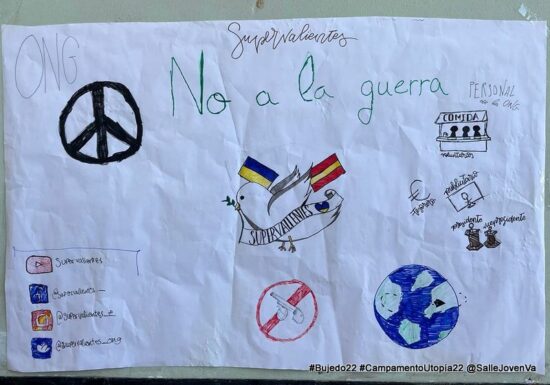 ONG
Supervalientes
No a la guerra
PERSONAL
de la ONG
COMIDA
voluntarios
publicitario
€
tesorero
presidente
vicepresidente
SUPERVALIENTES
Supervalientes
@supervalients_
@supervalientes_e
@supervalientes_ong
#Bujedo22 #CampamentoUtopia22 @SalleJovenVa